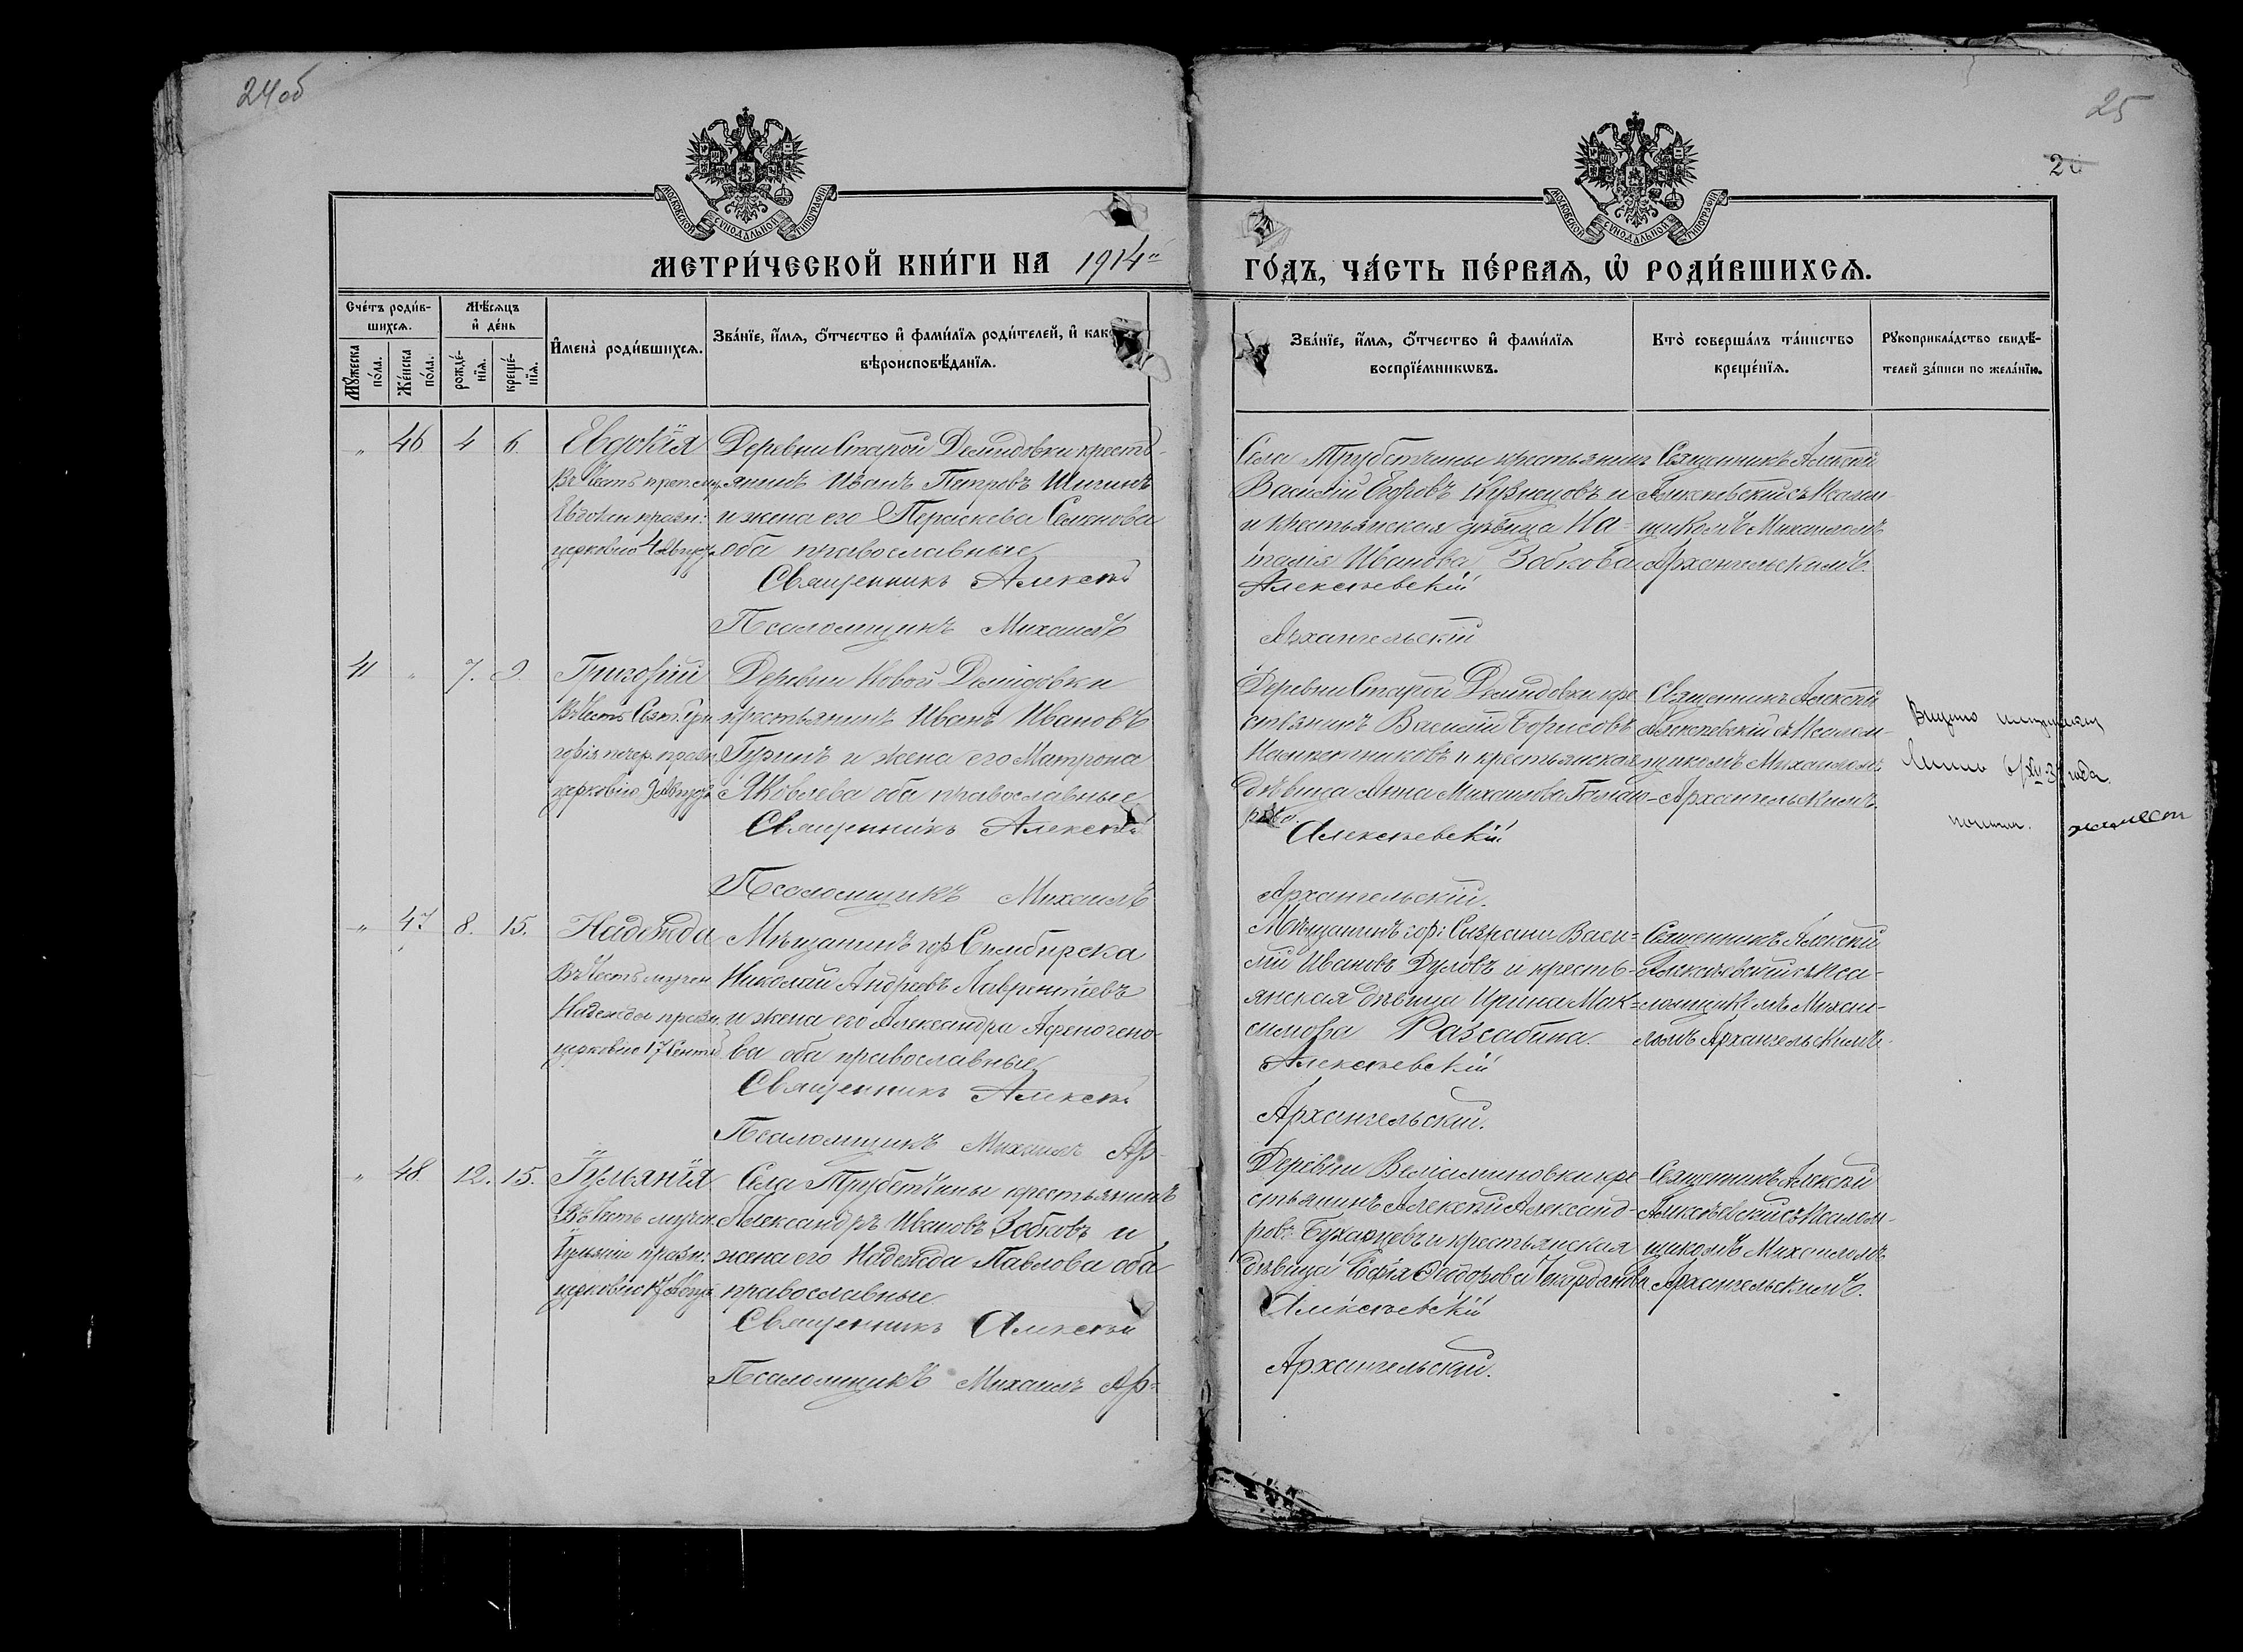 24 об
25
МОСКОВСКОЙ СѴНОДАЛЬНОЙ ТИПОГРАФІИ
МОСКОВСКОЙ СѴНОДАЛЬНОЙ ТИПОГРАФІИ
МЕТРИ́ЧЕСКОЙ КНИ́ГИ НА 1914
ГО́ДЪ, ЧА́СТЬ ПЕ́РВАѦ, Ѡ РОДИ́ВШИХСѦ.
Сче́тъ роди́в-
шихсѧ.
Мѣ́сѧцъ
и де́нь
Мꙋ́жеска
по́ла.
Же́нска
по́ла.
рожде́-
нїѧ.
креще́-
нїѧ.
Имена̀ роди́вшихсѧ.
Зва́нїе, и́мѧ, о́тчество и фами́лїѧ роди́телей, и
вѣроисповѣ́данїѧ.
Зва́нїе, и́мѧ, о́тчество и фами́лїѧ
воспрїе́мникѡвъ.
Кто̀ соверша́лъ та́инство
креще́нїѧ.
Рꙋкоприкла́дство свидѣ́-
телей за́писи по жела́нїю.
„ 46 4 6. Евдокія
Въ честь преп. муч.
Евдокіи праздн:
церковію 4 Августа
Деревни Старой Демидовки кресть-
янинъ Иванъ Петровъ Шигинъ
и жена его Параскева Семенова
оба православные
Священникъ Алексѣй
Псаломщикъ Михаилъ
Села Трубетчины крестьянинъ
Василій Егоровъ Кузнецовъ и
и крестьянская дѣвица На-
талія Иванова Зобкова
Алексѣевскій
Архангельскій
Священникъ Алексѣй
Алексѣевскій съ Псалом-
щикомъ Михаиломъ
Архангельскимъ.
41 „ 7. 9. Григорій
Въ честь Свят. Гри
горія печер. праздн.
церковію 9 Августа
Деревни Новой Демидовки
крестьянинъ Иванъ Ивановъ
Гуринъ и жена его Матрона
Яковлева оба православные
Священникъ Алексѣй
Псаломщикъ Михаилъ
Деревни Старой Демидовки кре
стьянинъ Василій Борисовъ
и крестьянская
дѣвица Анна Михаилова
Алексѣевскій
Архангельскій.
Священникъ Алексѣй
Алексѣевскій съ Псалом-
щикомъ Михаиломъ
Архангельскимъ.
года.
„ 47 8. 15. Надежда
Въ честь мучен.
Надежды праздн.
церковію 17 Сентяб
Мѣщанинъ гор Симбирска
Николай Андреевъ Лаврентіевъ
и жена его Александра Афеногено-
ва оба православные
Священникъ Алексѣй
Псаломщикъ Михаилъ Ар-
Мѣщанинъ гор: Сызрани Васи-
лій Ивановъ Дуловъ и кресть-
янская дѣвица Ирина Мак-
симова Разсабина.
Алексѣевскій
Архангельскій.
Священникъ Алексѣй
Алексѣевскій съ Пса-
ломщикомъ Михаи-
ломъ Архангельскимъ.
„ 48 12. 15. Іульянія
Въ честь мучен.
Іульяніи праздн:
церковію 17 Авгус.
Села Трубетчины крестьянинъ
Александръ Ивановъ Зобковъ и
жена его Надежда Павлова оба
православные
Священникъ Алексѣй
Псаломщикъ Михаилъ Ар-
Деревни Вельяминовки кре
стьянинъ Алексѣй Александ-
ровъ Бухарцевъ и крестьянская
дѣвица Софія Ѳеодорова
Алексѣевскій
Архангельскій.
Священникъ Алексѣй
Алексѣевскій съ Псалом-
щикомъ Михаиломъ
Архангельскимъ.